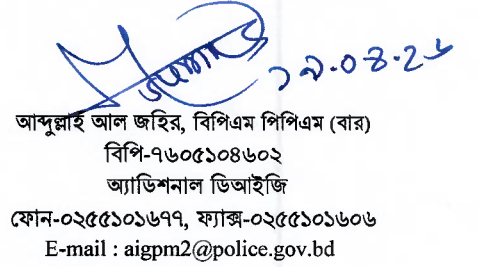 ১৯.০৪.২৬
আব্দুল্লাহ আল জহির, বিপিএম পিপিএম (বার)
বিপি-৭৬০৫১০৪৬০২
অ্যাডিশনাল ডিআইজি
ফোন-০২৫৫১০১৬৭৭, ফ্যাক্স-০২৫৫১০১৬০৬
E-mail : aigpm2@police.gov.bd